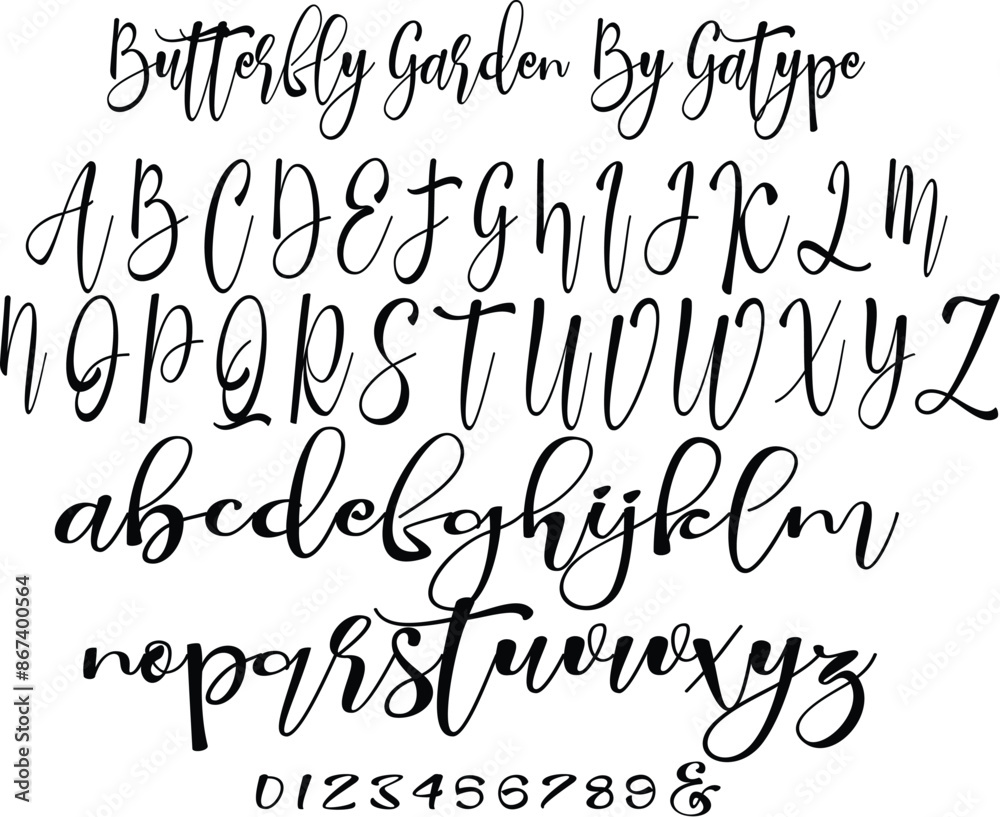 Butterfly Garden By Gatype
A B C D E F G H I J K L M
N O P Q R S T U V W X Y Z
abcdefghijklm
nopqrstuvwxyz
0123456789&
Adobe Stock | #867400564